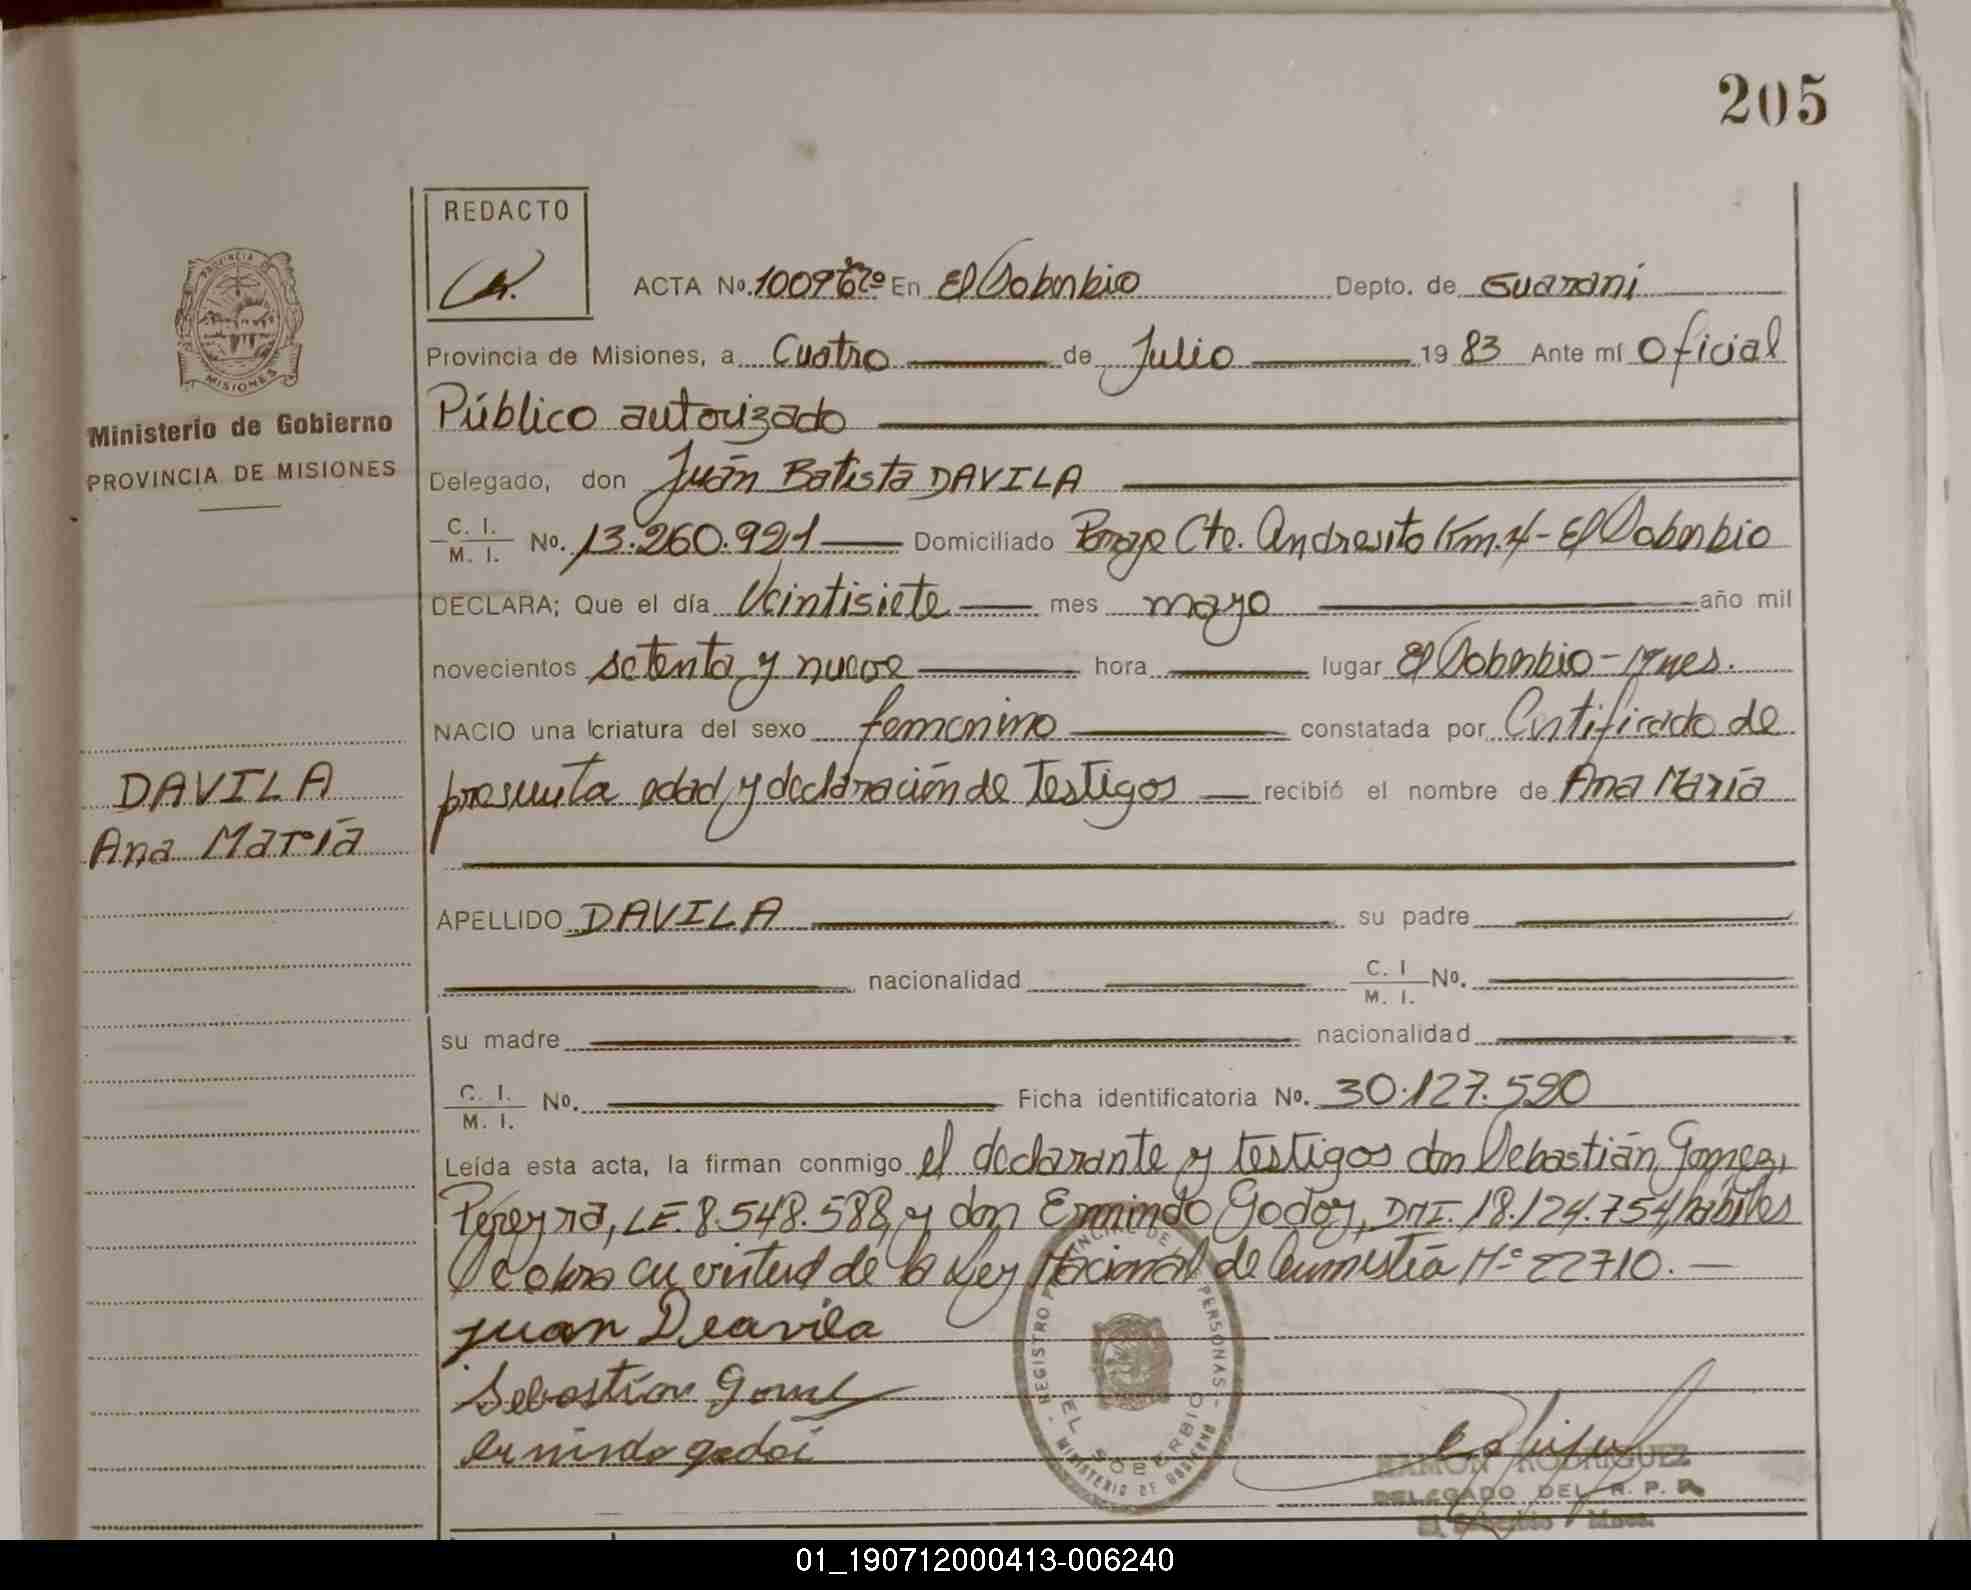 205
REDACTO
PROVINCIA DE
MISIONES
Ministerio de Gobierno
PROVINCIA DE MISIONES
ACTA No. 1009 En El Soberbio Depto. de Guaraní
Provincia de Misiones, a Cuatro de Julio 19 83 Ante mí Oficial
Público autorizado
Delegado, don Juán Batista DAVILA
C. I. M. I. No. 13.260.921 Domiciliado Cte. Andresito Km. 4 - El Soberbio
DECLARA; Que el día Veintisiete mes mayo año mil
novecientos setenta y nueve hora lugar El Soberbio - Mnes.
NACIO una criatura del sexo femenino constatada por Certificado de
presunta edad y declaración de Testigos recibió el nombre de Ana María
DAVILA
Ana María
APELLIDO DAVILA su padre
nacionalidad C. I M. I. No.
su madre nacionalidad
C. I. M. I. No. Ficha identificatoria No. 30.127.590
Leída esta acta, la firman conmigo el declarante y testigos don Sebastián Gomez,
Pereyra, LE. 8.548.588, y don Ermindo Godoy, DNI. 18.124.754, hábiles
Se labra en virtud de la Ley Nacional de Amnistía Nº 22710. -
Juan Deavila
Sebastian Gomez
Ermindo godoi
REGISTRO PROVINCIAL DE PERSONAS
EL SOBERBIO
MINISTERIO DE GOBIERNO
RAMON RODRIGUEZ
DELEGADO DEL R. P. P.
El Soberbio
01_190712000413-006240